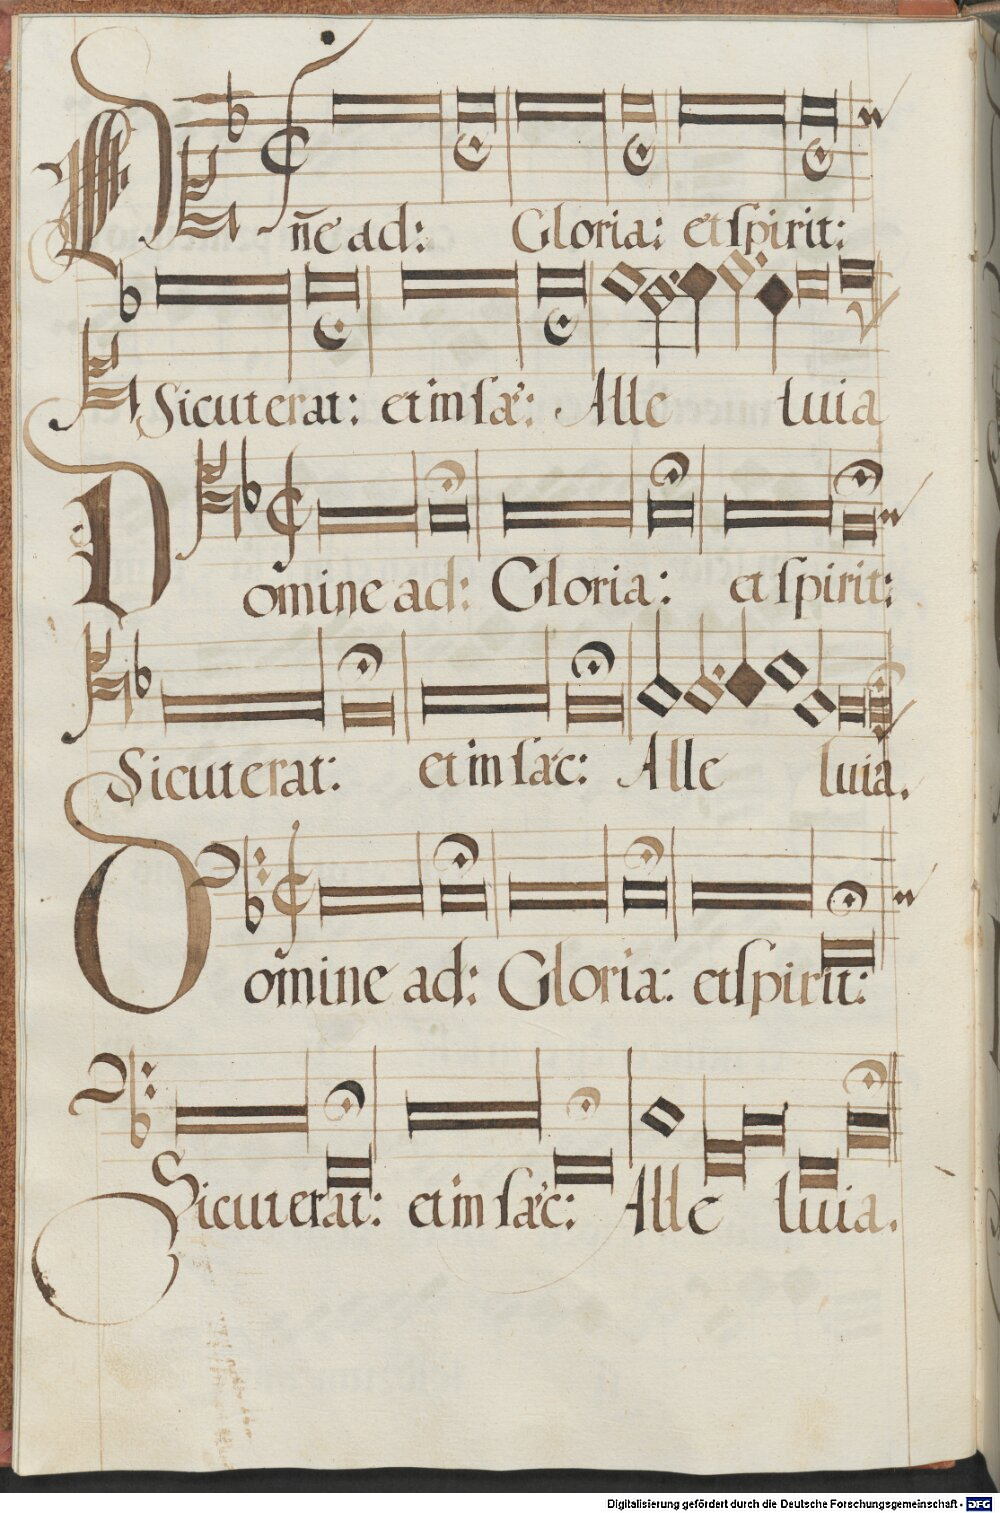 Dñe ad: Gloria: et spirit:
Sicut erat: et in sæ: Alle luia
Domine ad: Gloria: et spirit:
Sicut erat: et in sæc: Alle luia.
Domine ad: Gloria: et spirit:
Sicut erat: et in sæc: Alle luia.
Digitalisierung gefördert durch die Deutsche Forschungsgemeinschaft - DFG